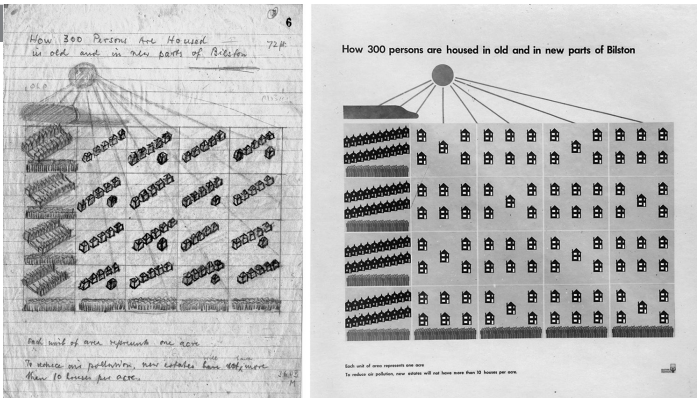 6
How 300 Persons Are Housed
in old and in new parts of Bilston
72 pt.
OLD
Each unit of area represents one acre
To reduce air pollution, new estates will have not more
than 10 houses per acre.
M
How 300 persons are housed in old and in new parts of Bilston
Each unit of area represents one acre
To reduce air pollution, new estates will not have more than 10 houses per acre.